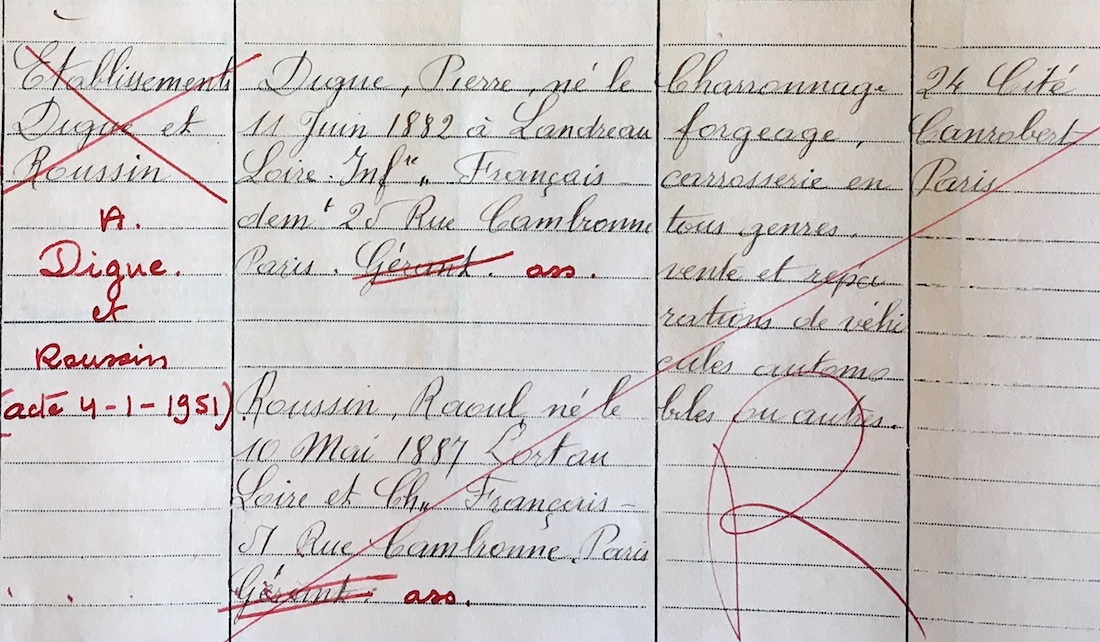 Etablissements
Digue et
Roussin
A.
Digue.
et
Roussin
(acte 4-1-1951)
Digue, Pierre, né le
11 Juin 1882 à Landreau
Loire-Infre „ Français –
demt 25 Rue Cambronne
Paris. Gérant. ass.
Roussin, Raoul né le
10 Mai 1887
Loire et Ch„ Français –
51 Rue Cambronne. Paris
Gérant. ass.
Charronnage
forgeage,
carrosserie en
tous genres,
vente et répa
rations de véhi
cules automo
biles ou autres.
R
24 Cité
Canrobert
Paris